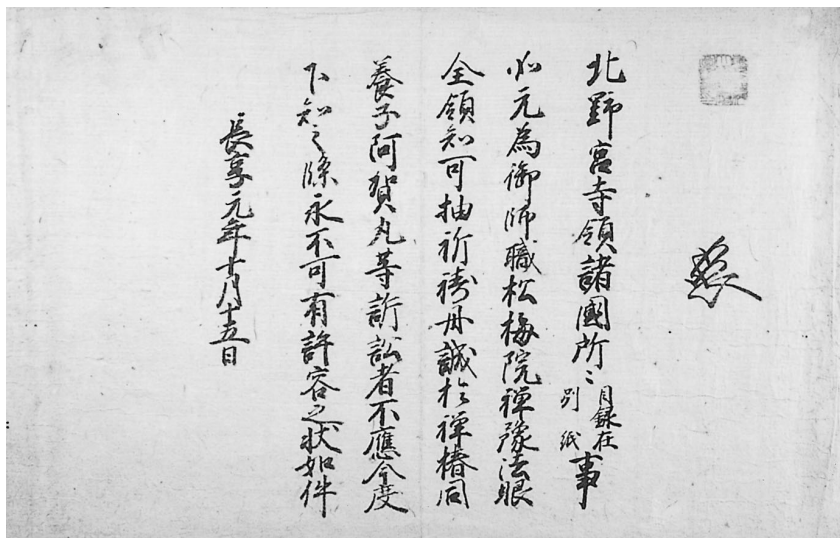 北野宮寺領諸國所々目録在別紙事
如元為御師職松梅院禅豫法眼
全領知可抽祈祷丹誠於禅椿同
養子阿賀丸等訴訟者不應今度
下知之條永不可有許容之状如件
長享元年十月十五日